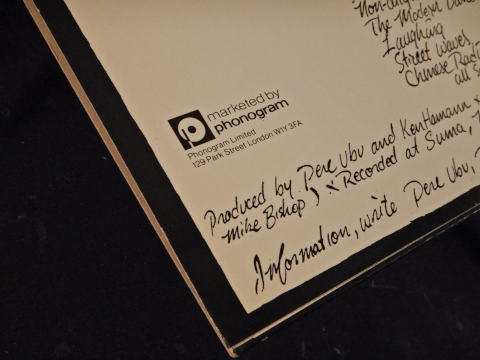 Non-
The Modern
Laughing
Street Waves
Chinese
all
marketed by
phonogram
Phonogram Limited
129 Park Street London W1Y 3FA
Produced by Pere Ubu and Ken Hamann
Mike Bishop, Recorded at Suma,
Information, write Pere Ubu,